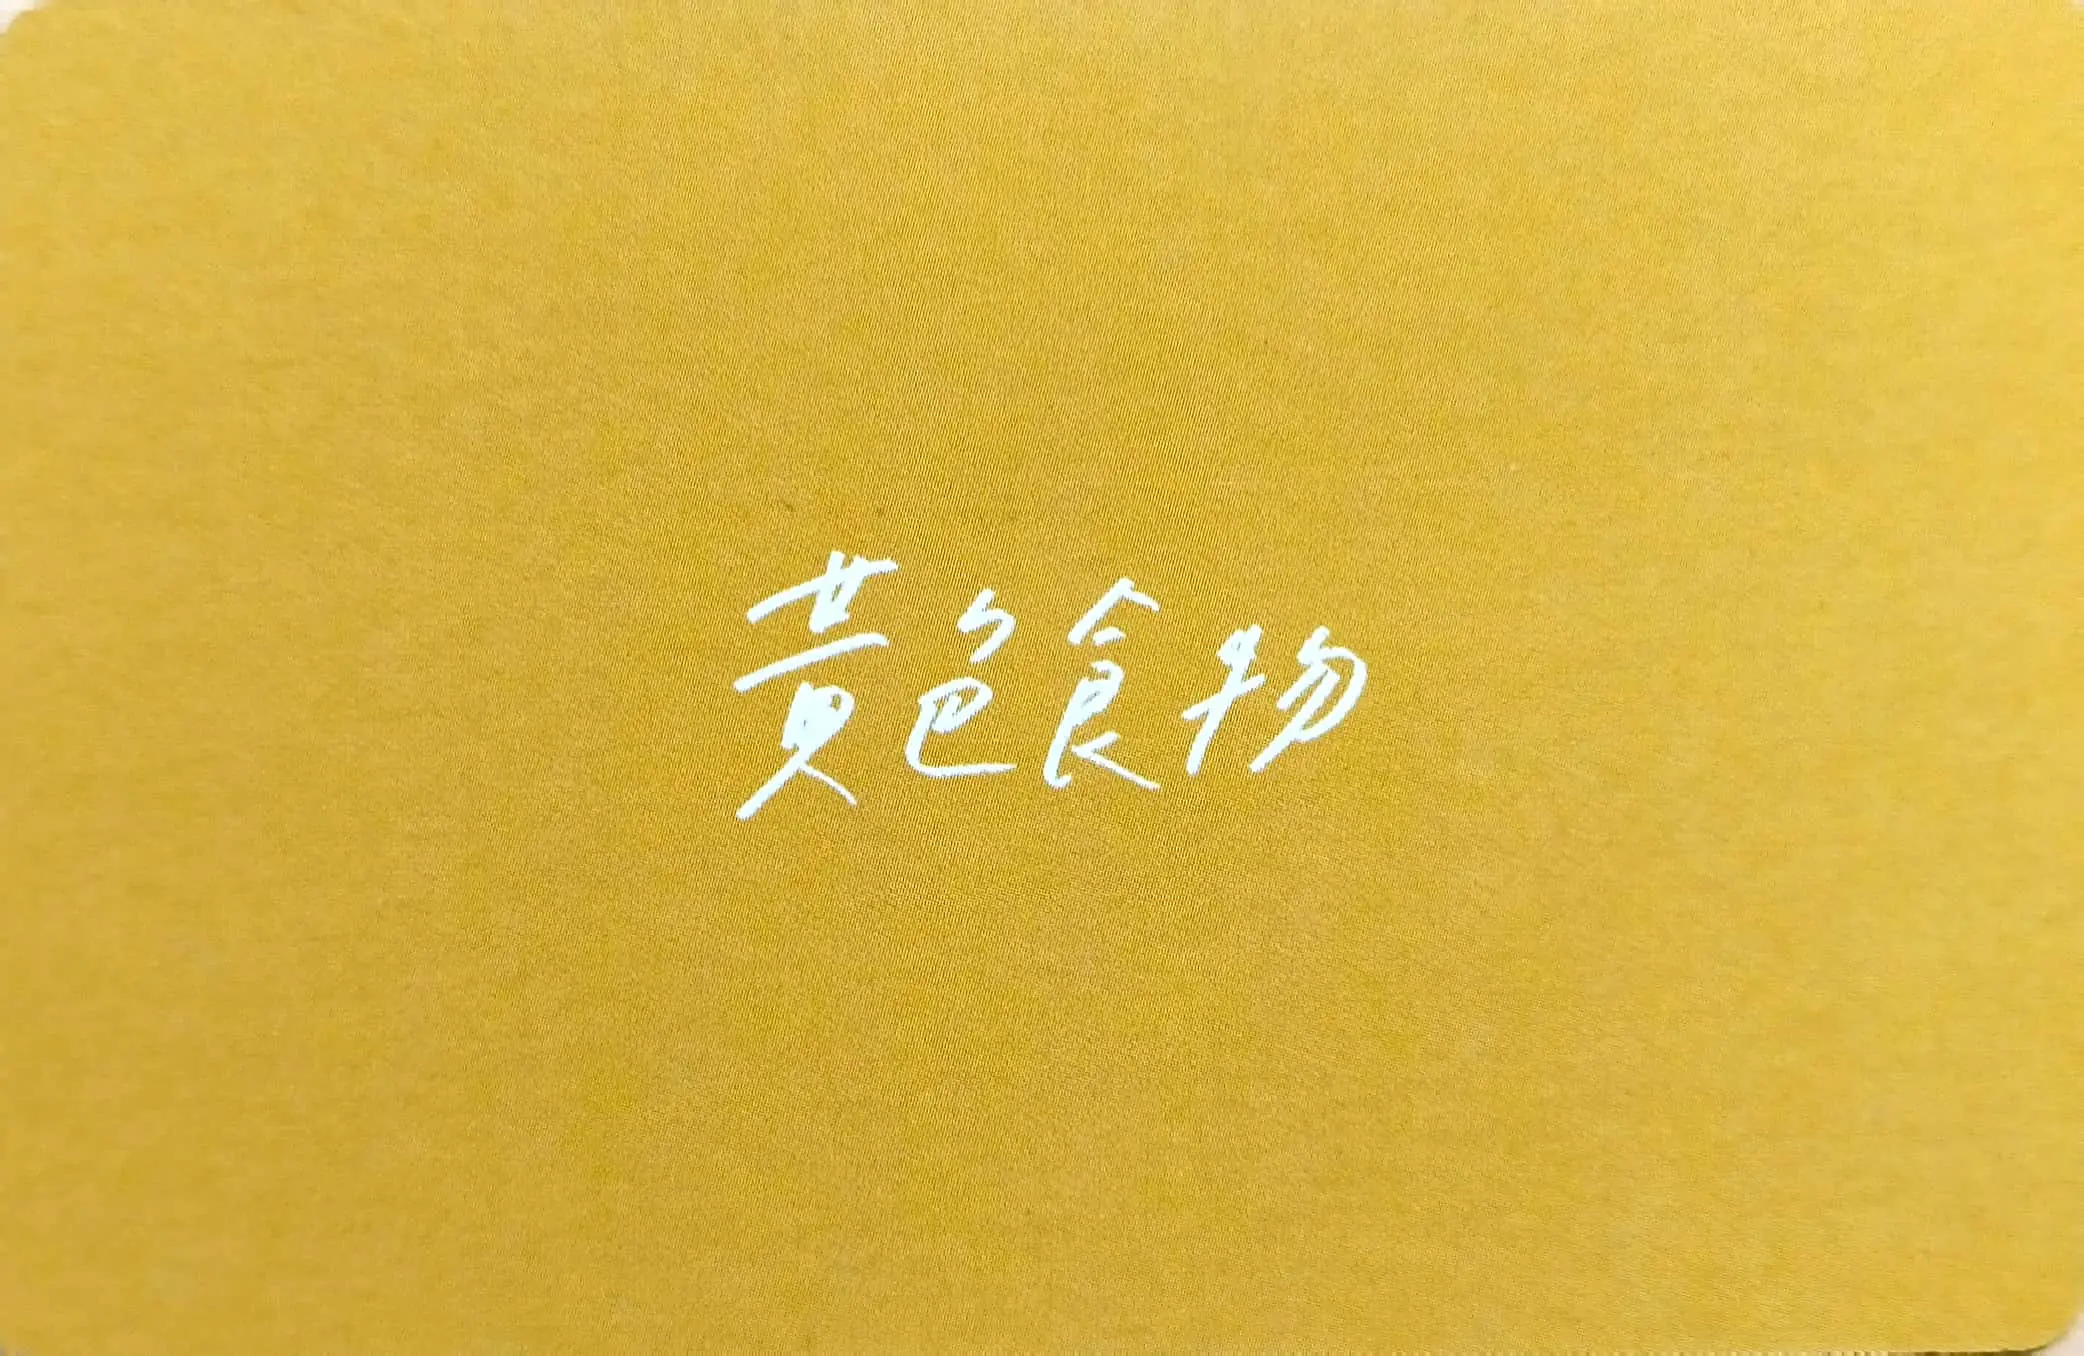 黄色食物